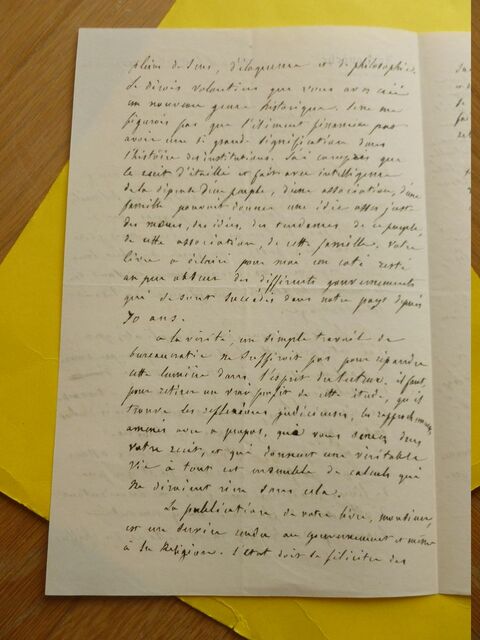 pleine de sens, d'éloquence et de philosophie.
Je dirois volontiers que vous avez créé
un nouveau genre historique. Je ne me
figurois pas que l'élément financier put
avoir une si grande signification dans
l'histoire des institutions. J'ai compris que
le récit détaillé et fait avec intelligence
de la dépense d'un peuple, d'une association, d'une
famille pouvait donner une idée assez juste
des mœurs, des idées, des tendances de ce peuple,
de cette association, de cette famille. Votre
livre a éclairé pour moi un coté resté
un peu obscur des différents gouvernements
qui se sont succédés dans notre pays depuis
70 ans.
à la vérité, un simple travail de
bureaucratie ne suffiroit pas pour répandre
cette lumière dans l'esprit du lecteur. il faut,
pour retirer un vrai profit de cette étude, qu'il
trouve les réflexions judicieuses, les rapprochemens
amenés avec à propos, que vous semez dans
votre récit, et qui donnent une véritable
vie à tout cet ensemble de calculs qui
ne diroient rien sans cela.
La publication de votre livre, monsieur,
est un service rendu au gouvernement et même
à la Religion. l'état doit se féliciter des